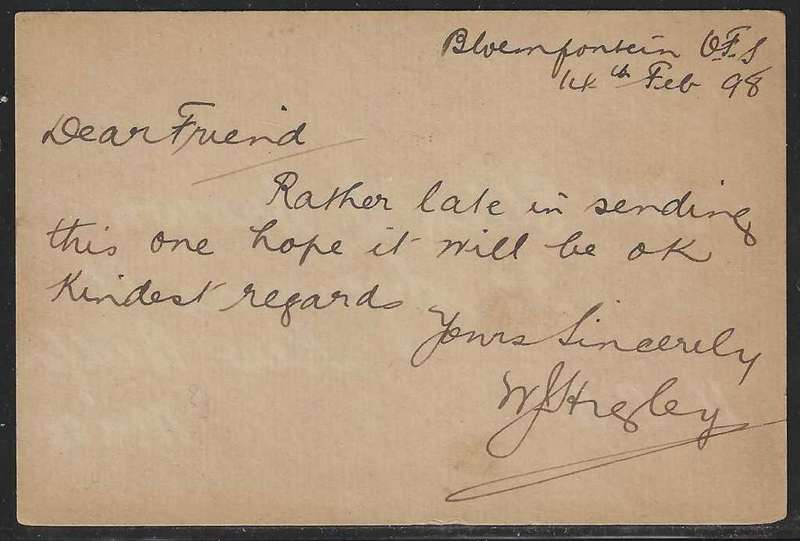 Bloemfontein O.F.S
14th Feb 98
Dear Friend
Rather late in sending
this one hope it will be ok
Kindest regards
Yours Sincerely